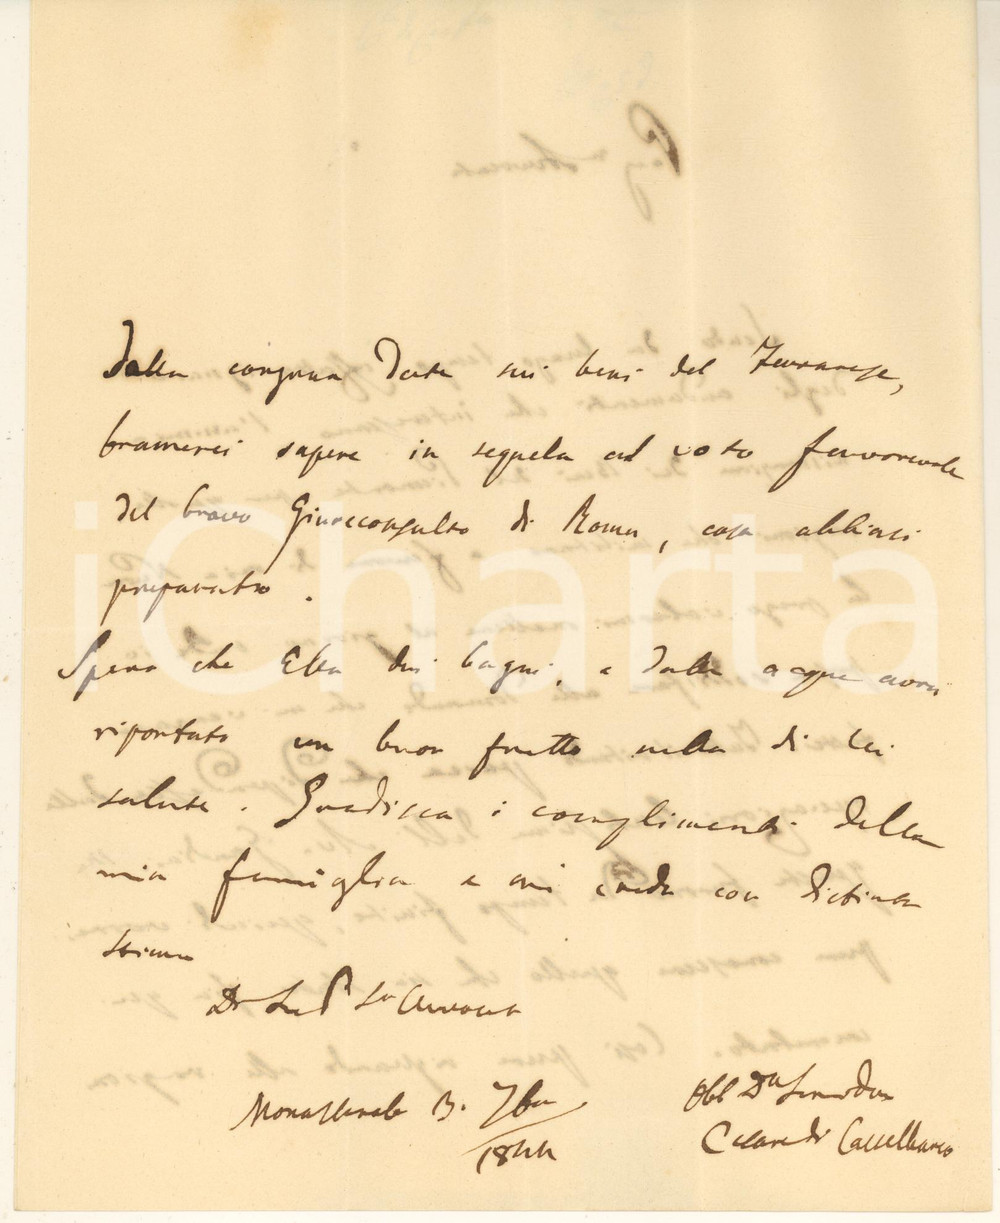 Dalla congrua Dote sui beni del Ferrarese,
bramerei sapere in seguela al voto favorevole
del bravo Giureconsulto di Roma, cosa abbiasi
preparato.
Spero che Ella dai bagni, e dalle acque avrà
riportato un buon frutto nella di Lei
salute. Gradisca i complimenti della
mia famiglia e mi creda con distinta
stima
Di Lei
Monasterolo 3. 7bre
1844
Obb Servidor
Cesare di Castelbarco
iCharta